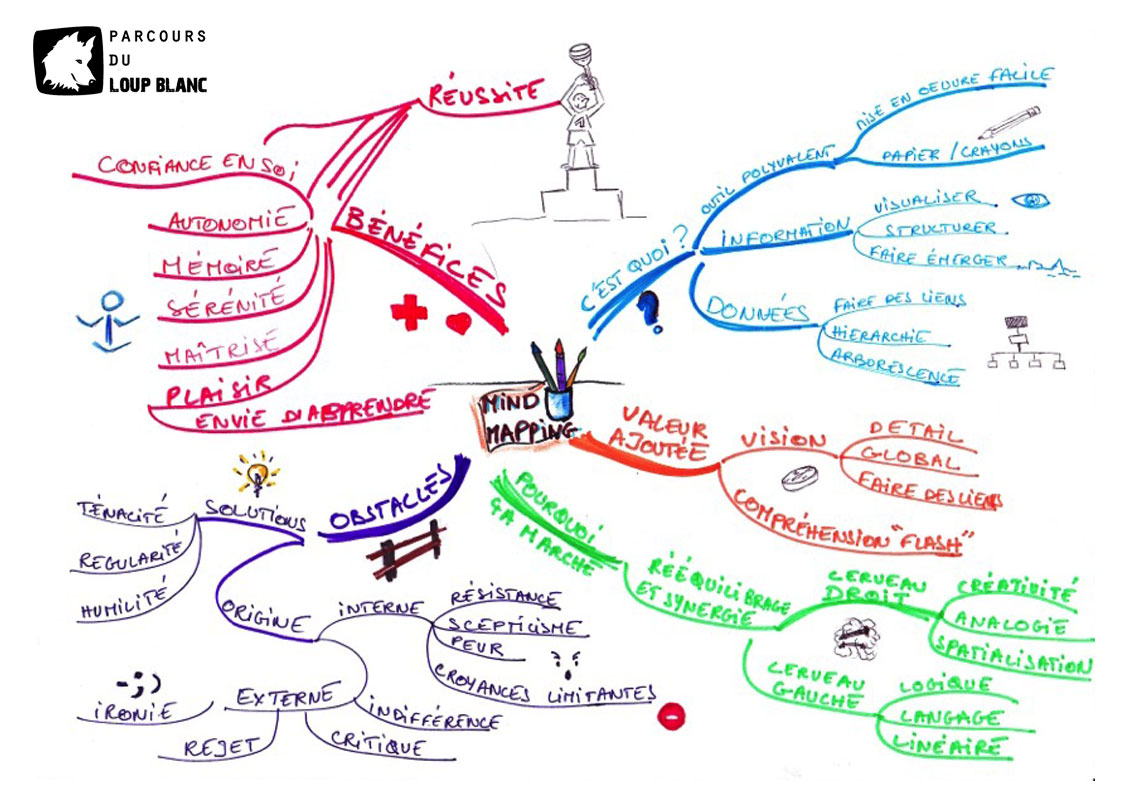 PARCOURS
DU
LOUP BLANC
MIND
MAPPING
C'EST QUOI ?
OUTIL POLYVALENT
MISE EN OEUVRE FACILE
PAPIER / CRAYONS
INFORMATION
VISUALISER
STRUCTURER
FAIRE ÉMERGER
DONNÉES
FAIRE DES LIENS
HIERARCHIE
ARBORESCENCE
VALEUR
AJOUTÉE
VISION
DETAIL
GLOBAL
FAIRE DES LIENS
COMPRÉHENSION "FLASH"
POURQUOI
ÇA MARCHE
RÉÉQUILIBRAGE
ET SYNERGIE
CERVEAU
DROIT
CRÉATIVITÉ
ANALOGIE
SPATIALISATION
CERVEAU
GAUCHE
LOGIQUE
LANGAGE
LINÉAIRE
OBSTACLES
SOLUTIONS
TÉNACITÉ
REGULARITÉ
HUMILITÉ
ORIGINE
INTERNE
RÉSISTANCE
SCEPTICISME
PEUR
CROYANCES LIMITANTES
EXTERNE
INDIFFÉRENCE
CRITIQUE
REJET
IRONIE
-;)
BÉNÉFICES
RÉUSSITE
1
CONFIANCE EN SOI
AUTONOMIE
MÉMOIRE
SÉRÉNITÉ
MAÎTRISE
PLAISIR
ENVIE D'APPRENDRE
?